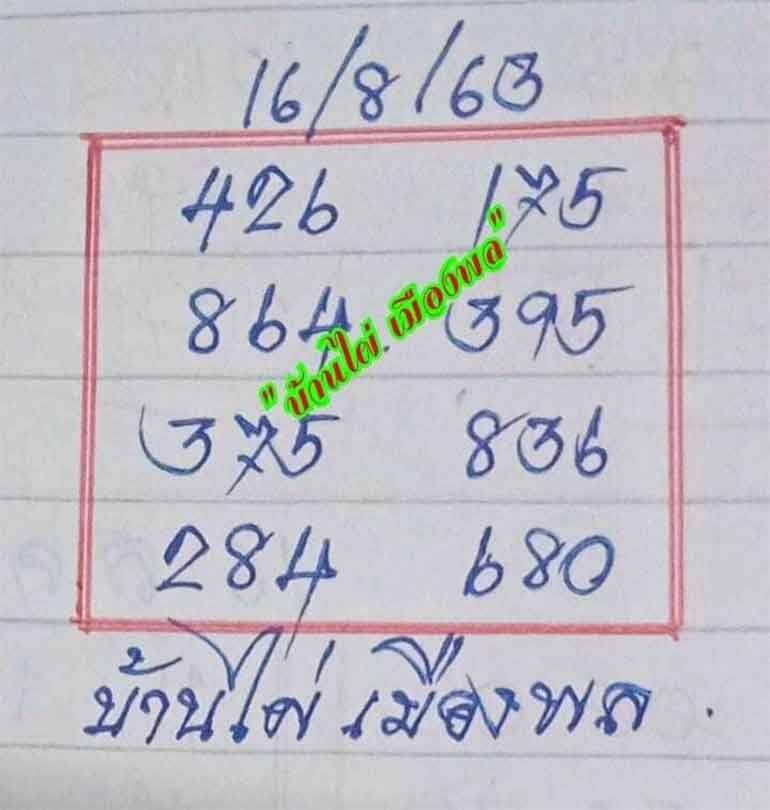 16/8/63
426 175
864 395
375 836
284 680
"บ้านไผ่ เมืองพล"
บ้านไผ่ เมืองพล.